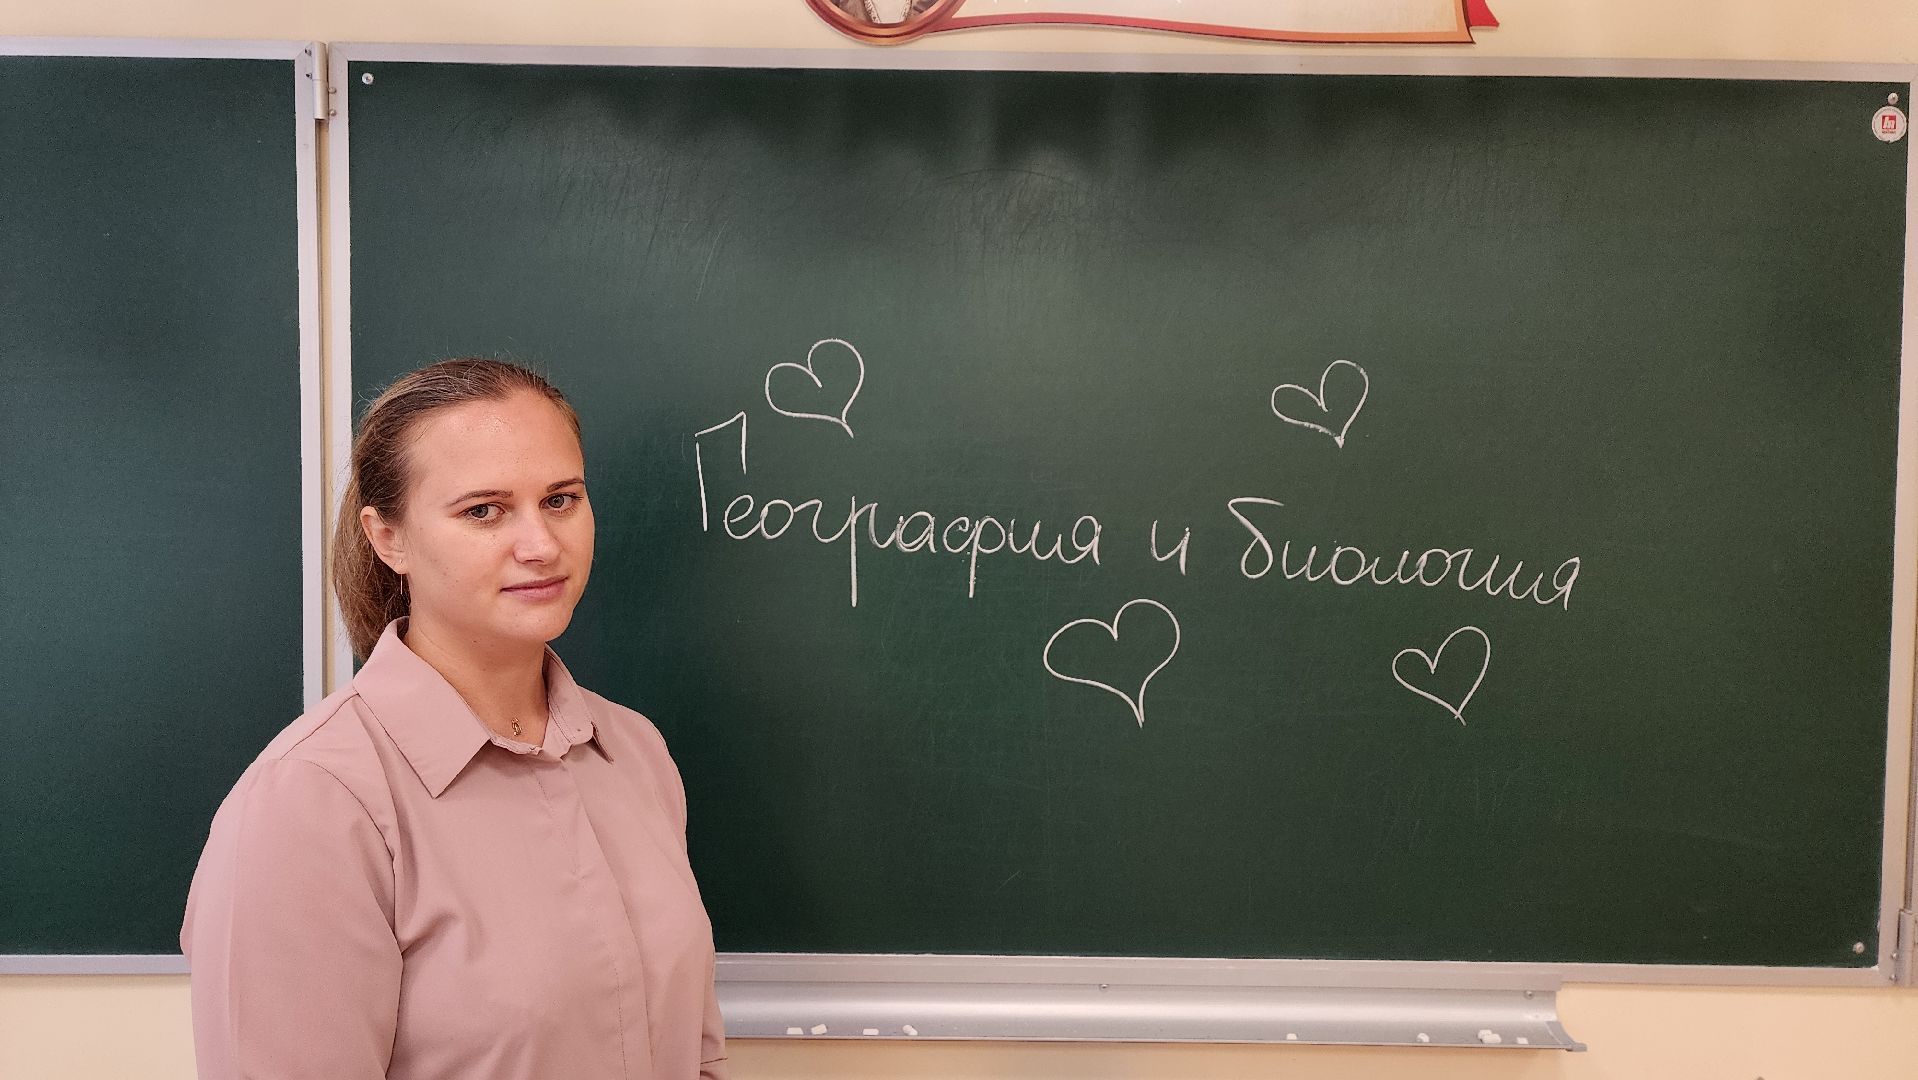 География и биология